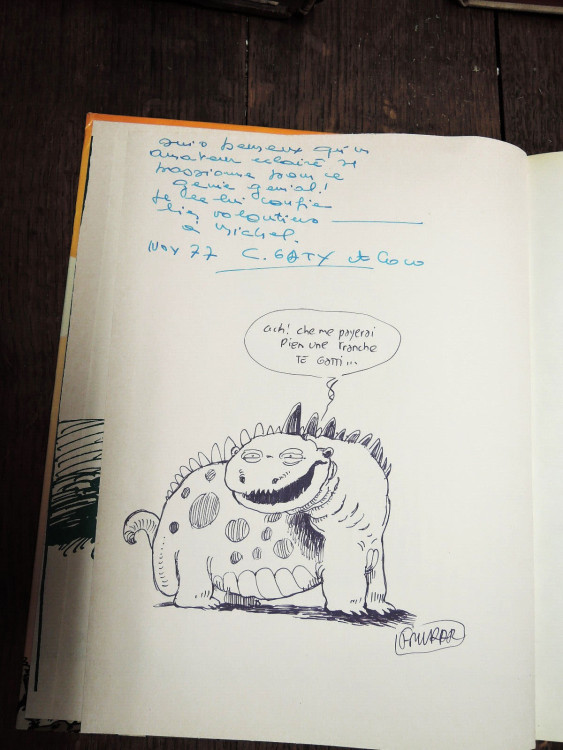 suis heureux qu'un
amateur éclairé se
passionne pour ce
génie génial!
Je le lui confie
bien volontiers
à Michel.
Nov 77 C. GATY
ach! che me payerai
Pien une Tranche
TE Gatti...